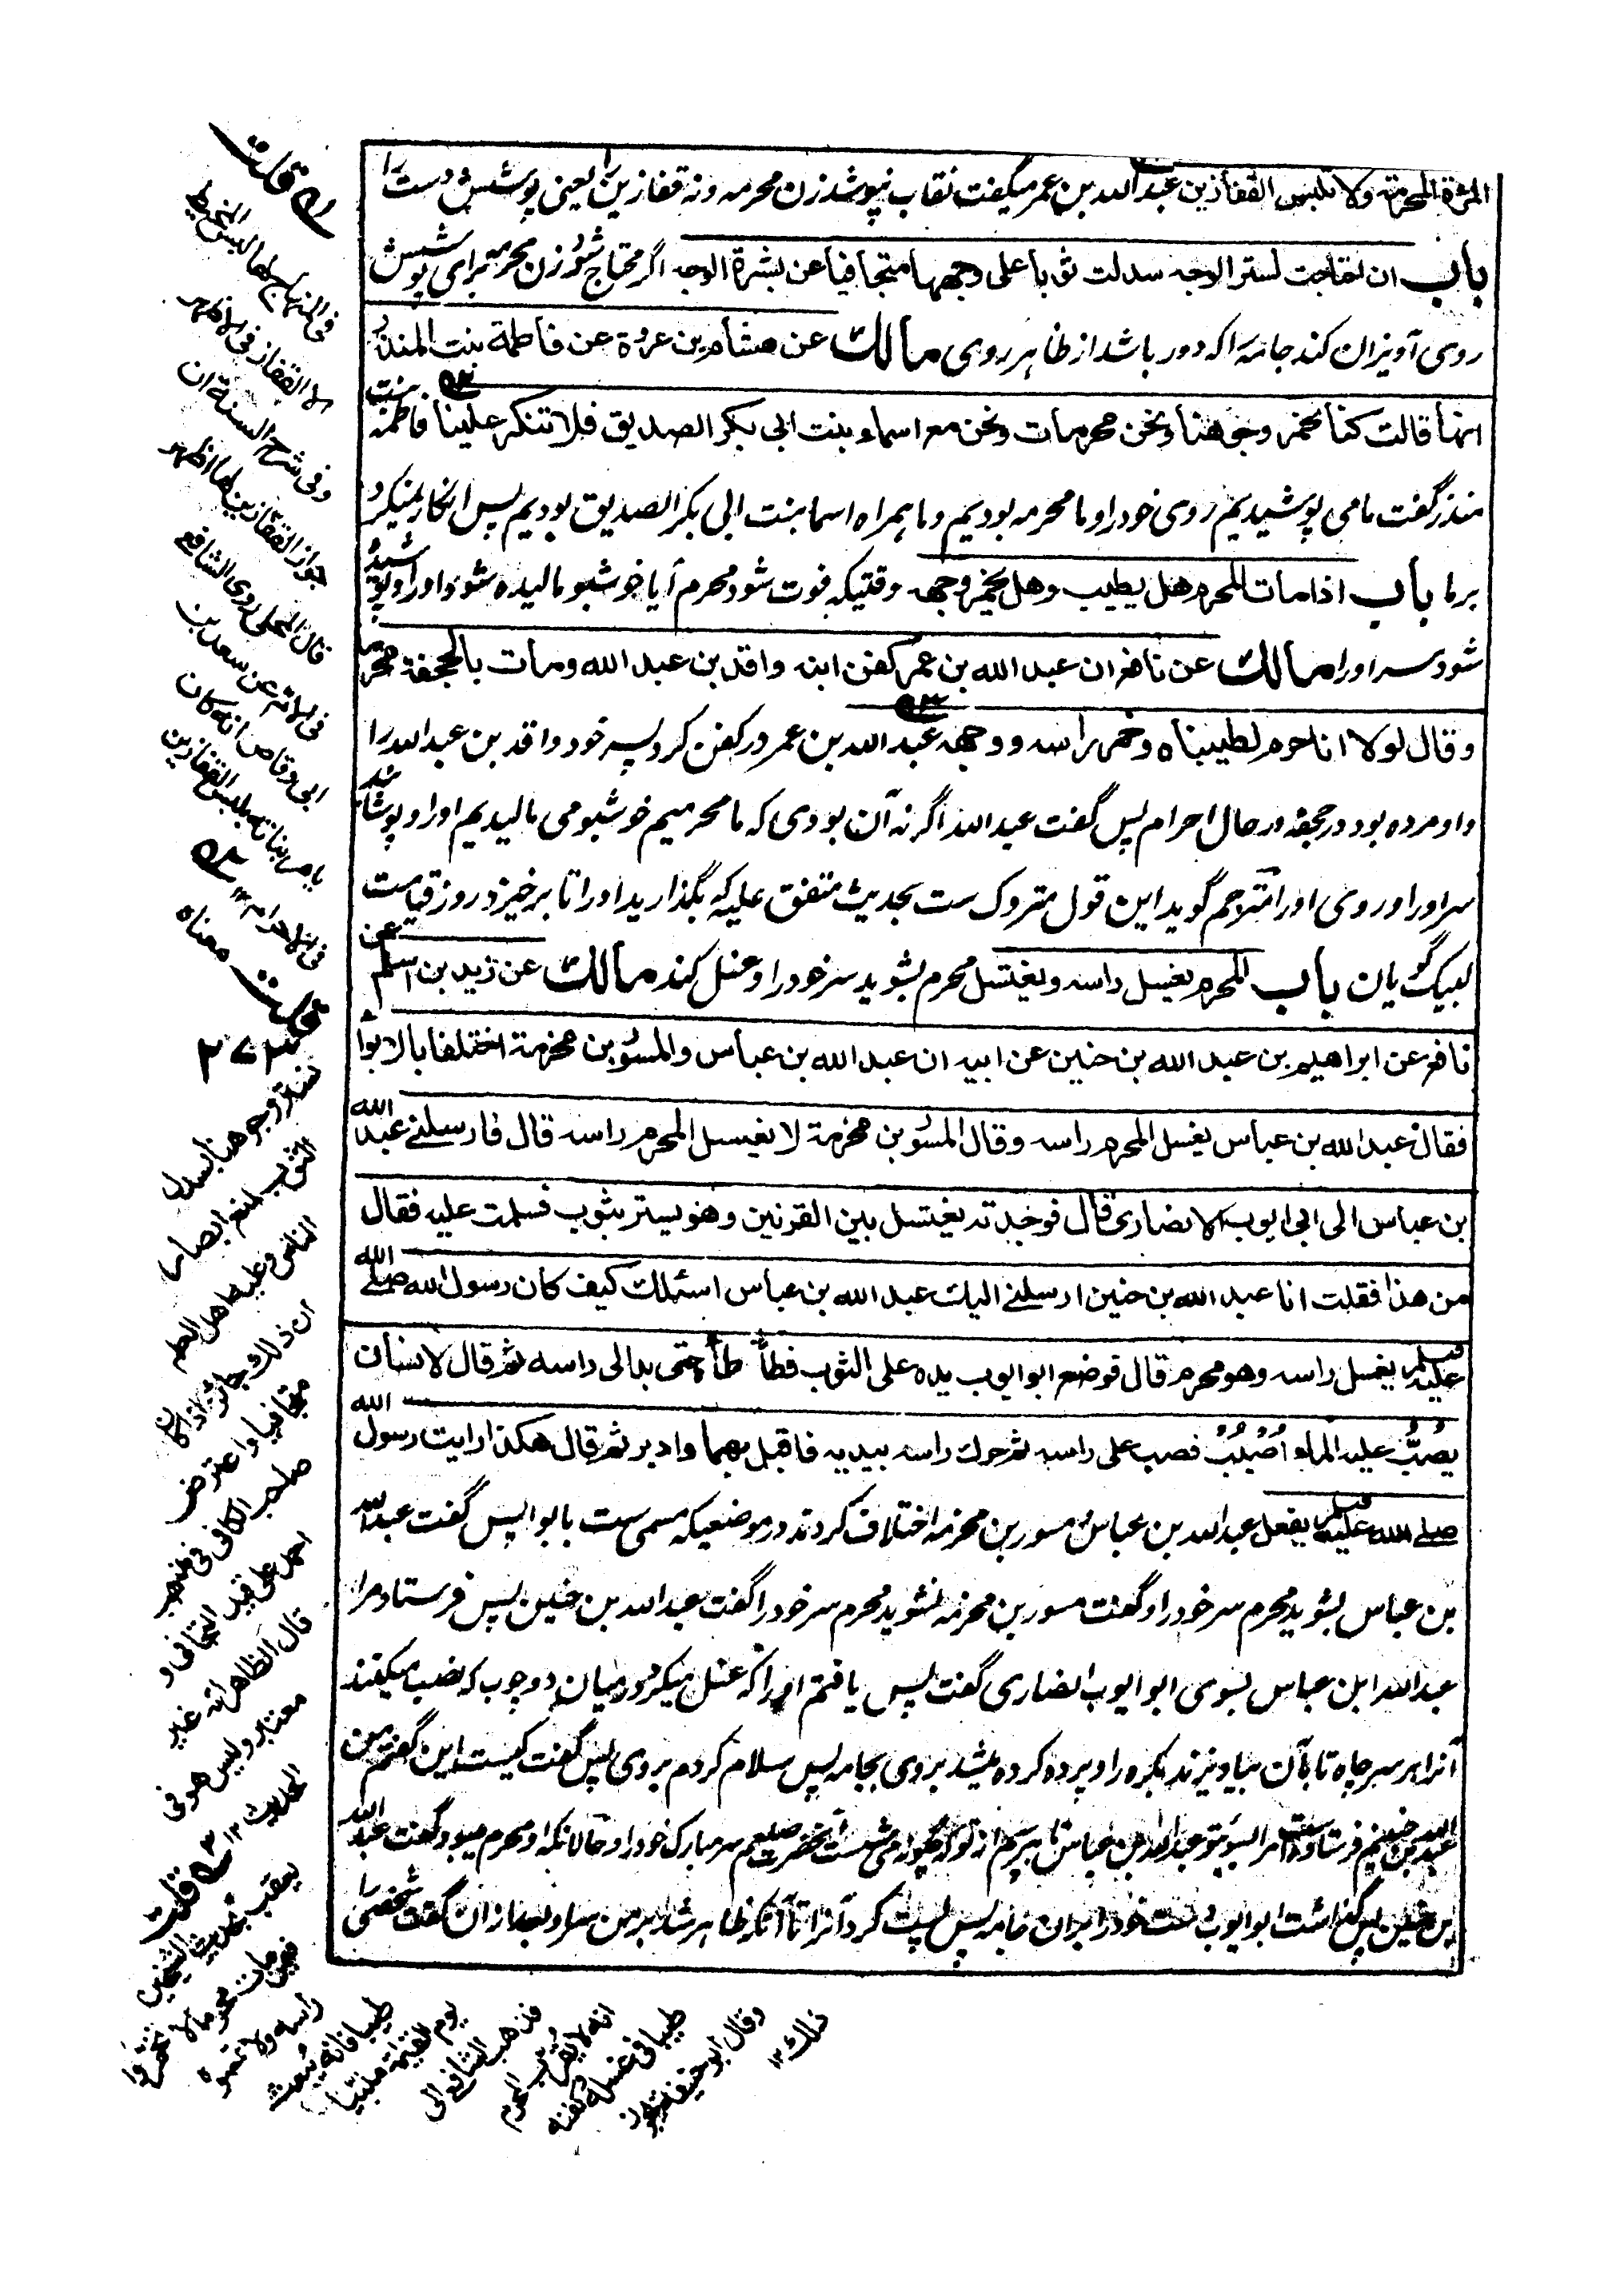 المرأة المحرمة ولا تلبس القفازين عبد الله بن عمر میگفت نقاب نپوشد زن محرمه و نه قفازین را یعنی پوشش دست را
باب ان احتاجت لستر الوجه سدلت ثوبا على وجهها متجافيا عن بشرة الوجه اگر محتاج شود زن محرمه برای پوشش
روی آویزان کند جامه را که دور باشد از ظاهر روی مالك عن هشام بن عروة عن فاطمة بنت المنذر
انها قالت كنا نخمر وجوهنا ونحن محرمات ونحن مع اسماء بنت ابى بكر الصديق فلا تنكر علينا فاطمه بنت
منذر گفت ما می پوشیدیم روی خود را و ما محرمه بودیم و ما همراه اسما بنت ابی بکر الصدیق بودیم پس انکار نمیکرد
بر ما باب اذا مات المحرم هل يطيب وهل يخمر وجهه وقتیکه فوت شود محرم آیا خوشبو مالیده شود او را و پوشیده
شود سر او را مالك عن نافع ان عبد الله بن عمر كفن ابنه واقد بن عبد الله ومات بالجحفة محرما
وقال لولا انا حرم لطيبناه وخمر راسه ووجهه عبد الله بن عمر در کفن کرد پسر خود واقد بن عبد الله را
و او مرده بود در جحفه در حال احرام پس گفت عبد الله اگر نه آن بودی که ما محرمیم خوشبو می مالیدیم او را و پوشانید
سر او را و روی او را مترجم گوید این قول متروک ست بحدیث متفق علیه که بگذارید او را تا برخیزد روز قیامت
لبیک گویان باب المحرم يغسل راسه ويغتسل محرم بشوید سر خود را و غسل کند مالك عن زيد بن اسلم عن
نافع عن ابراهيم بن عبد الله بن حنين عن ابيه ان عبد الله بن عباس والمسور بن مخرمة اختلفا بالابواء
فقال عبد الله بن عباس يغسل المحرم راسه وقال المسور بن مخرمة لا يغسل المحرم راسه قال فارسلنے عبد الله
بن عباس الى ابى ايوب الانصارى قال فوجدته يغتسل بين القرنين وهو يستر بثوب فسلمت عليه فقال
من هذا فقلت انا عبد الله بن حنين ارسلنے اليك عبد الله بن عباس اسئلك كيف كان رسول الله صلے الله
عليه وسلم يغسل راسه وهو محرم قال فوضع ابو ايوب يده على الثوب فطأطأه حتى بدا لى راسه ثم قال لانسان
يصُبُّ عليه الماء اُصْبُبْ فصب على راسه ثم حرك راسه بيديه فاقبل بهما وادبر ثم قال هكذا رايت رسول الله
صلے الله عليه وسلم يفعل عبد الله بن عباس و مسور بن مخرمه اختلاف کردند در موضعیکه مسمی ست بابوا پس گفت عبد الله
بن عباس بشوید محرم سر خود را و گفت مسور بن مخرمه نشوید محرم سر خود را گفت عبد الله بن حنین پس فرستاد مرا
عبد الله ابن عباس بسوی ابو ایوب انصاری گفت پس یافتم او را که غسل میکرد در میان دو چوب که نصب میکنند
آنرا بر سر چاه تا بآن بیاویزند بکره را و پرده کرده میشد بروی بجامه پس سلام کردم بروی پس گفت کیست این گفتم من
عبد الله بن حنینم فرستاده است مرا بسوی تو عبد الله بن عباس تا بپرسم از تو که چگونه می شست آنحضرت صلعم سر مبارک خود را و حالانکه او محرم میبود گفت عبد الله
بن حنین پس گذاشت ابو ایوب دست خود را بران جامه پس پست کرد آنرا تا آنکه ظاهر شد بر من سر او بعد ازان گفت شخصی را
قلت
فى المنهاج لها لبس المخيط
الا القفاز فى الاظهر
وفى شرح السنة ان
جواز القفازين لها اظهر
قال المحلى روى الشافعے
فى الام عن سعد بن
ابى وقاص انه كان
يامر بناته بلبس القفازين
فى الاحرام ١٢
قلت معناه
نستر وجوهنا بسدل
الثوب لمنع ابصار
الناس وعليه اهل العلم
ان ذلك جائز اذا كان
متجافيا واعترض
صاحب الكافى فى منصر
احمد على قيد التجافى و
قال الظاهر انه غير
معتبر وليس هو فى
الحديث ١٢
قلت
يعقب بحديث الشيخين
فيمن مات محرما لا تخمروا
راسه ولا تمسوه
طيبا فانه يبعث
يوم القيمة ملبيا
فذهب الشافعے الى
انه لا يقرب المحرم
طيبا فى غسله وكفنه
وقال ابو حنيفة يجوز
ذلك ١٢